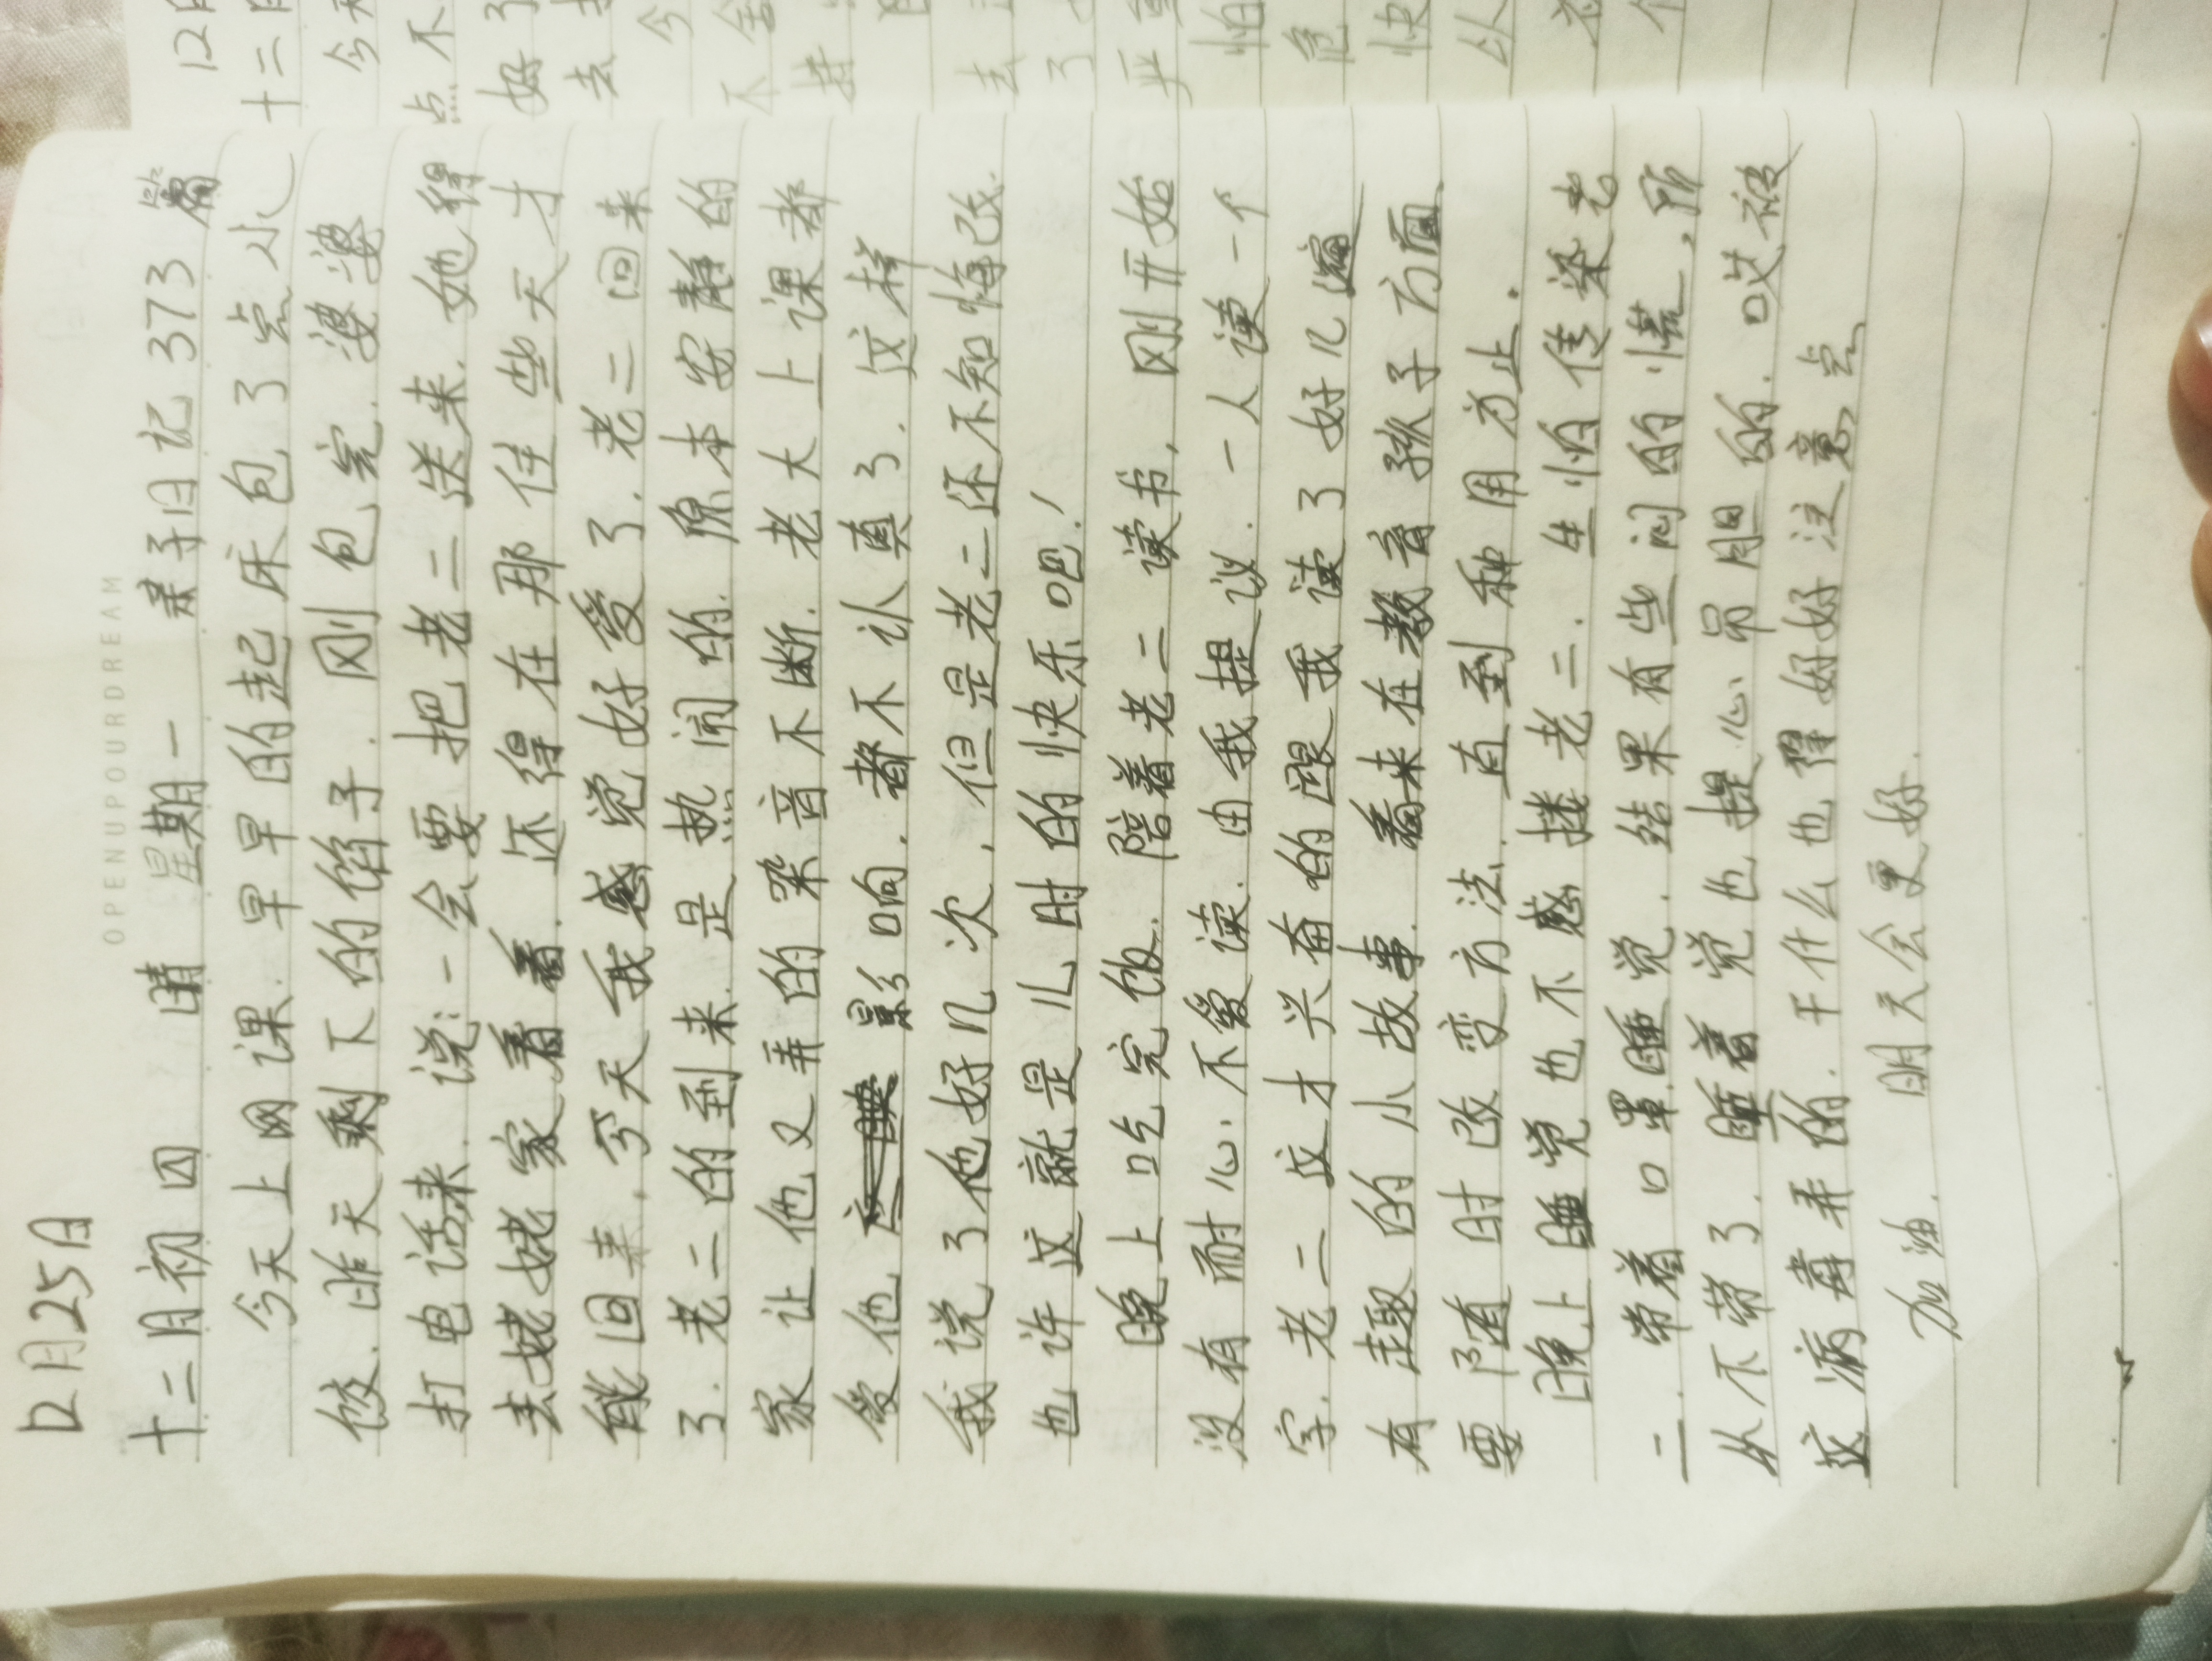 12月25日
OPENUPOURDREAM
十二月初四 晴 星期一 亲子日记373篇
今天上网课.早早的起床包了点小
饺.昨天剩下的馅子.刚包完.婆婆
打电话来.说:一会要把老二送来.她得
去姥姥家看看.还得在那住些天才
能回来.今天我感觉好爱了.老二回来
了.老二的到来.是热闹的.原本安静的
家让他又弄的杂音不断.老大上课都
受他影响.都不认真了.这样
我说了他好几次,但是老二还不知悔改.
也许这就是儿时的快乐吧!
晚上吃完饭.陪着老二读书,刚开始
没有耐心.不爱读.由我提议.一人读一个
字.老二这才兴奋的跟我读了好几遍
有趣的小故事.看来在教育孩子方面
要随时改变方法.直到种用为止.
晚上睡觉也不感搂老二.生怕传染老
二.带着口罩睡觉.结果有些闷的慌,所
从不带了.睡着觉也提心吊胆的.哎被
这病毒弄的.干什么也得好好注意点
加油.明天会更好.
12月
十二月
今天
点不
好了
去
今
不舍
去
了
严重
怕
危
快
以
个